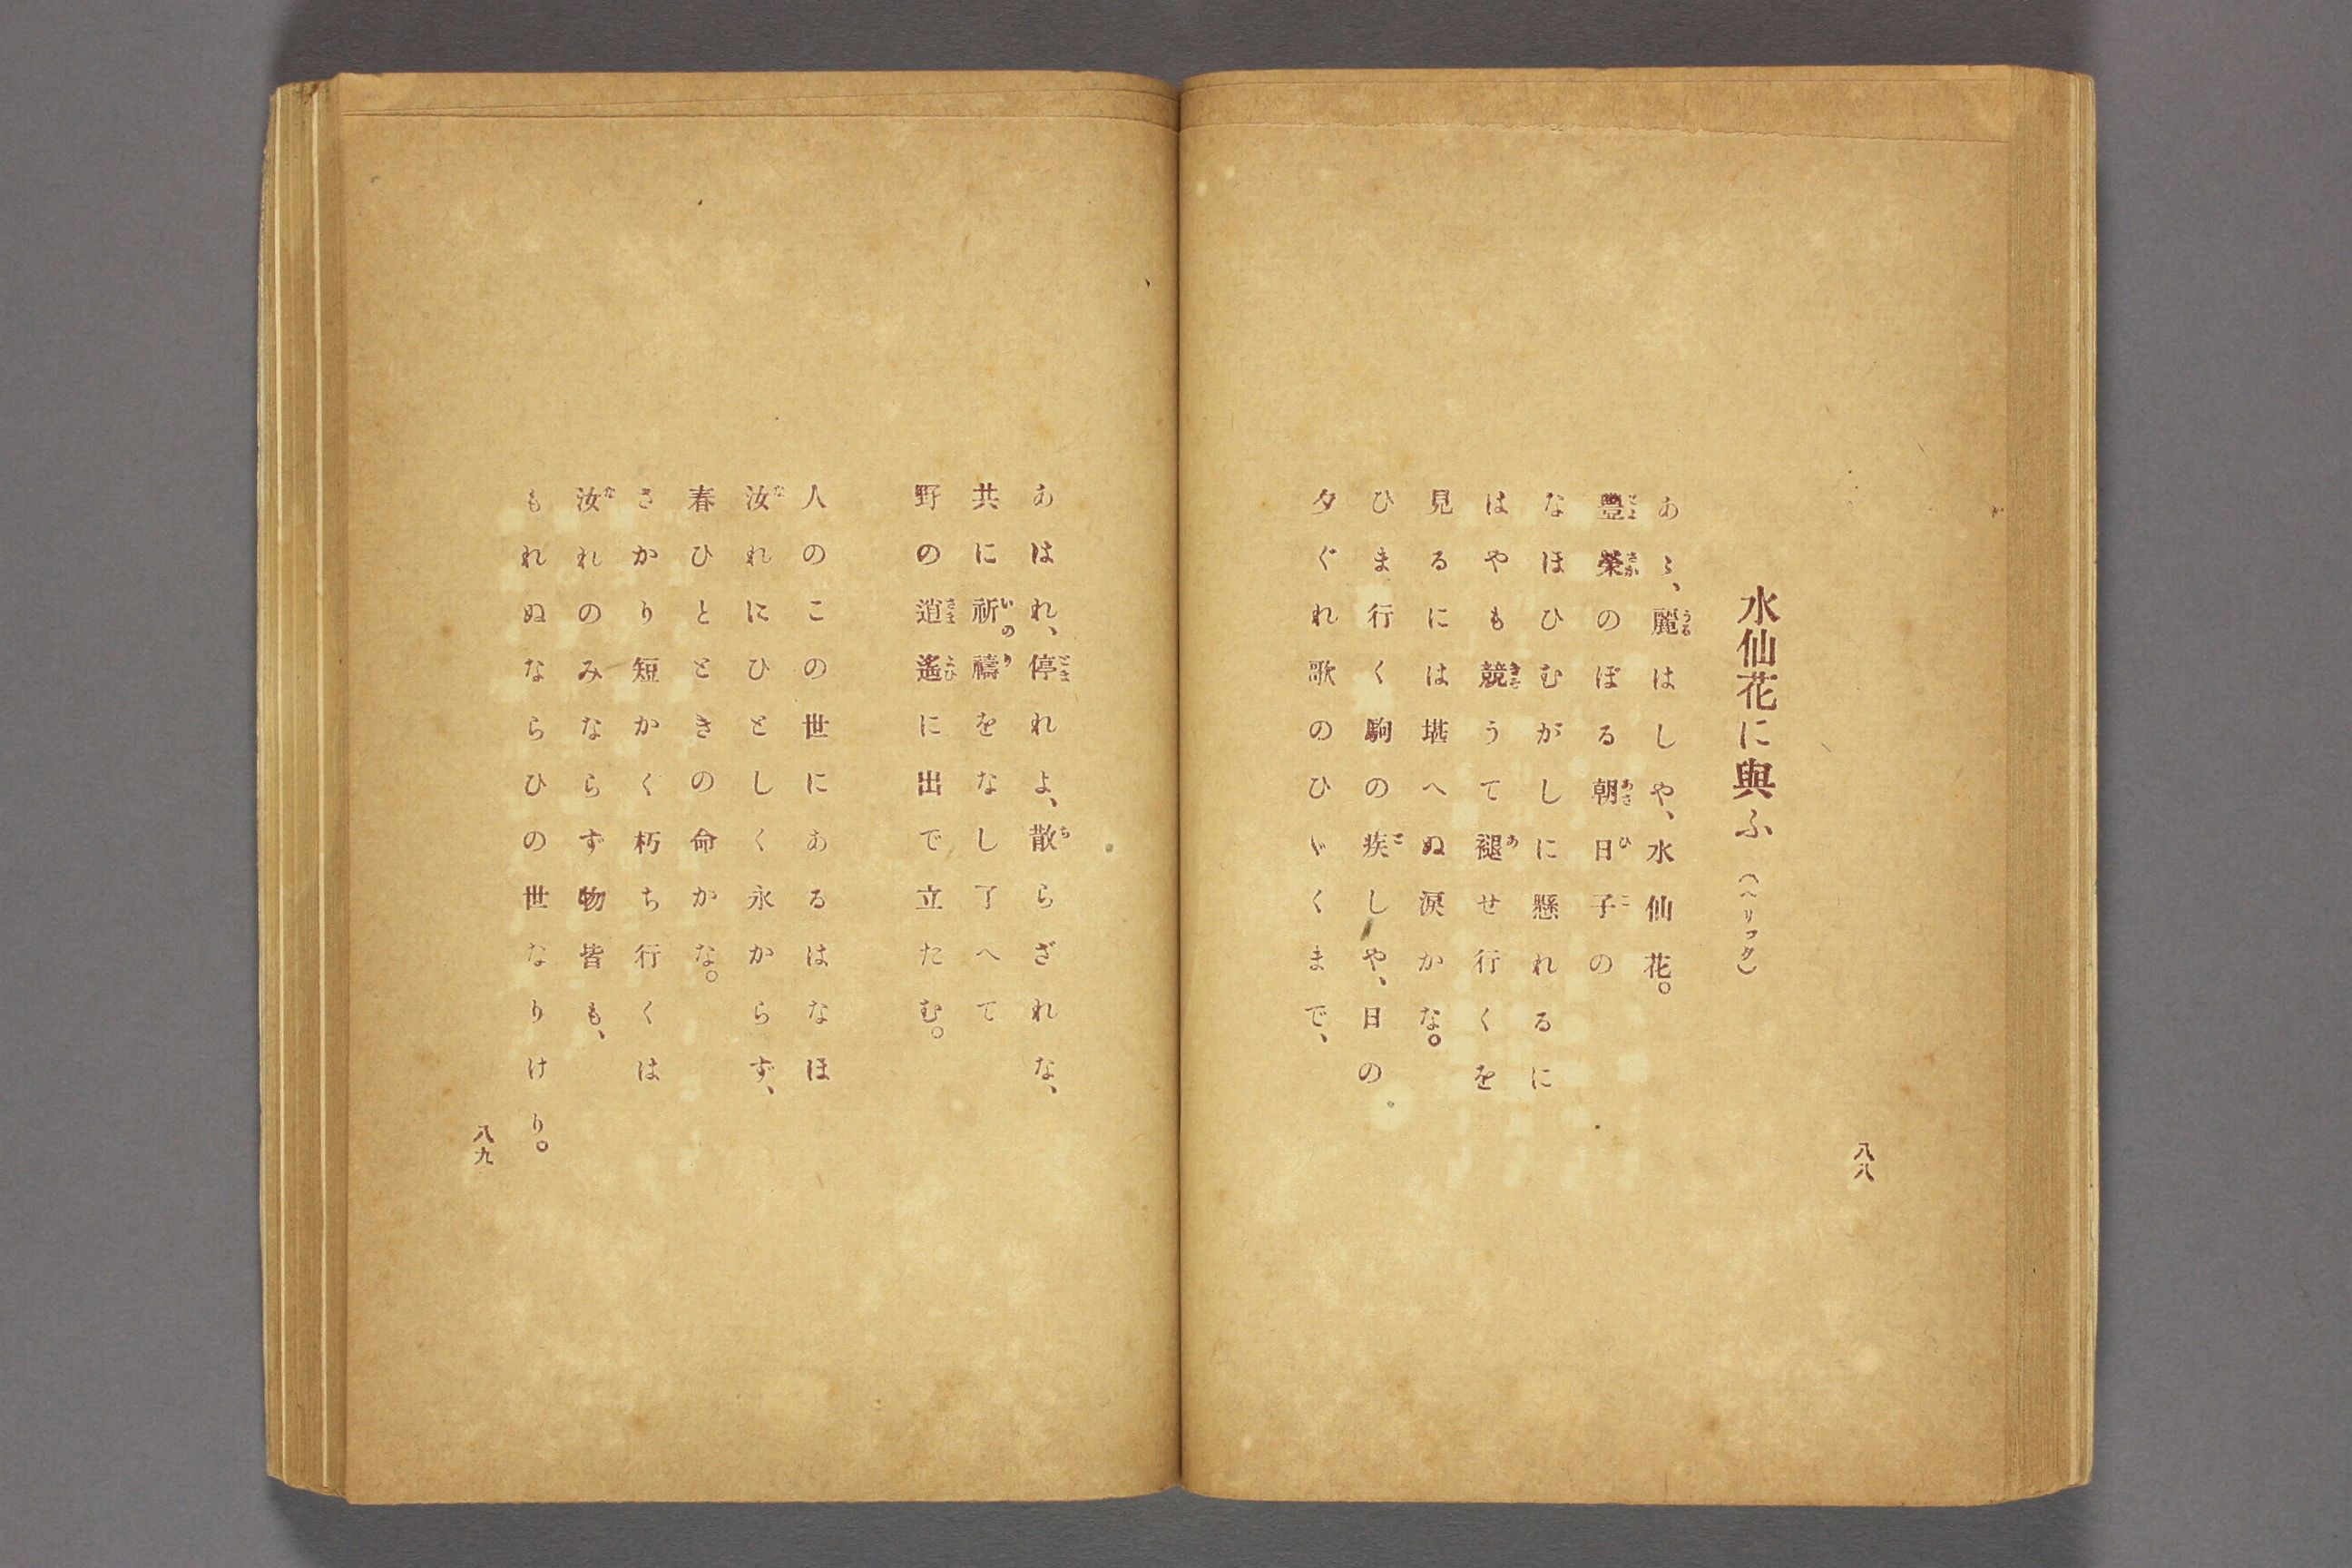 八八
水仙花に與ふ（ヘリック）
あゝ、麗はしや、水仙花。
豊榮のぼる朝日子の
なほひむがしに懸れるに
はやも競うて褪せ行くを
見るには堪へぬ涙かな。
ひま行く駒の疾しや、日の
夕ぐれ歌のひゞくまで、
あはれ、停れよ、散らざれな、
共に祈禱をなし了へて
野の逍遙に出で立たむ。
人のこの世にあるはなほ
汝れにひとしく永からず、
春ひとときの命かな。
さかり短かく朽ち行くは
汝れのみならず物皆も、
もれぬならひの世なりけり。
八九